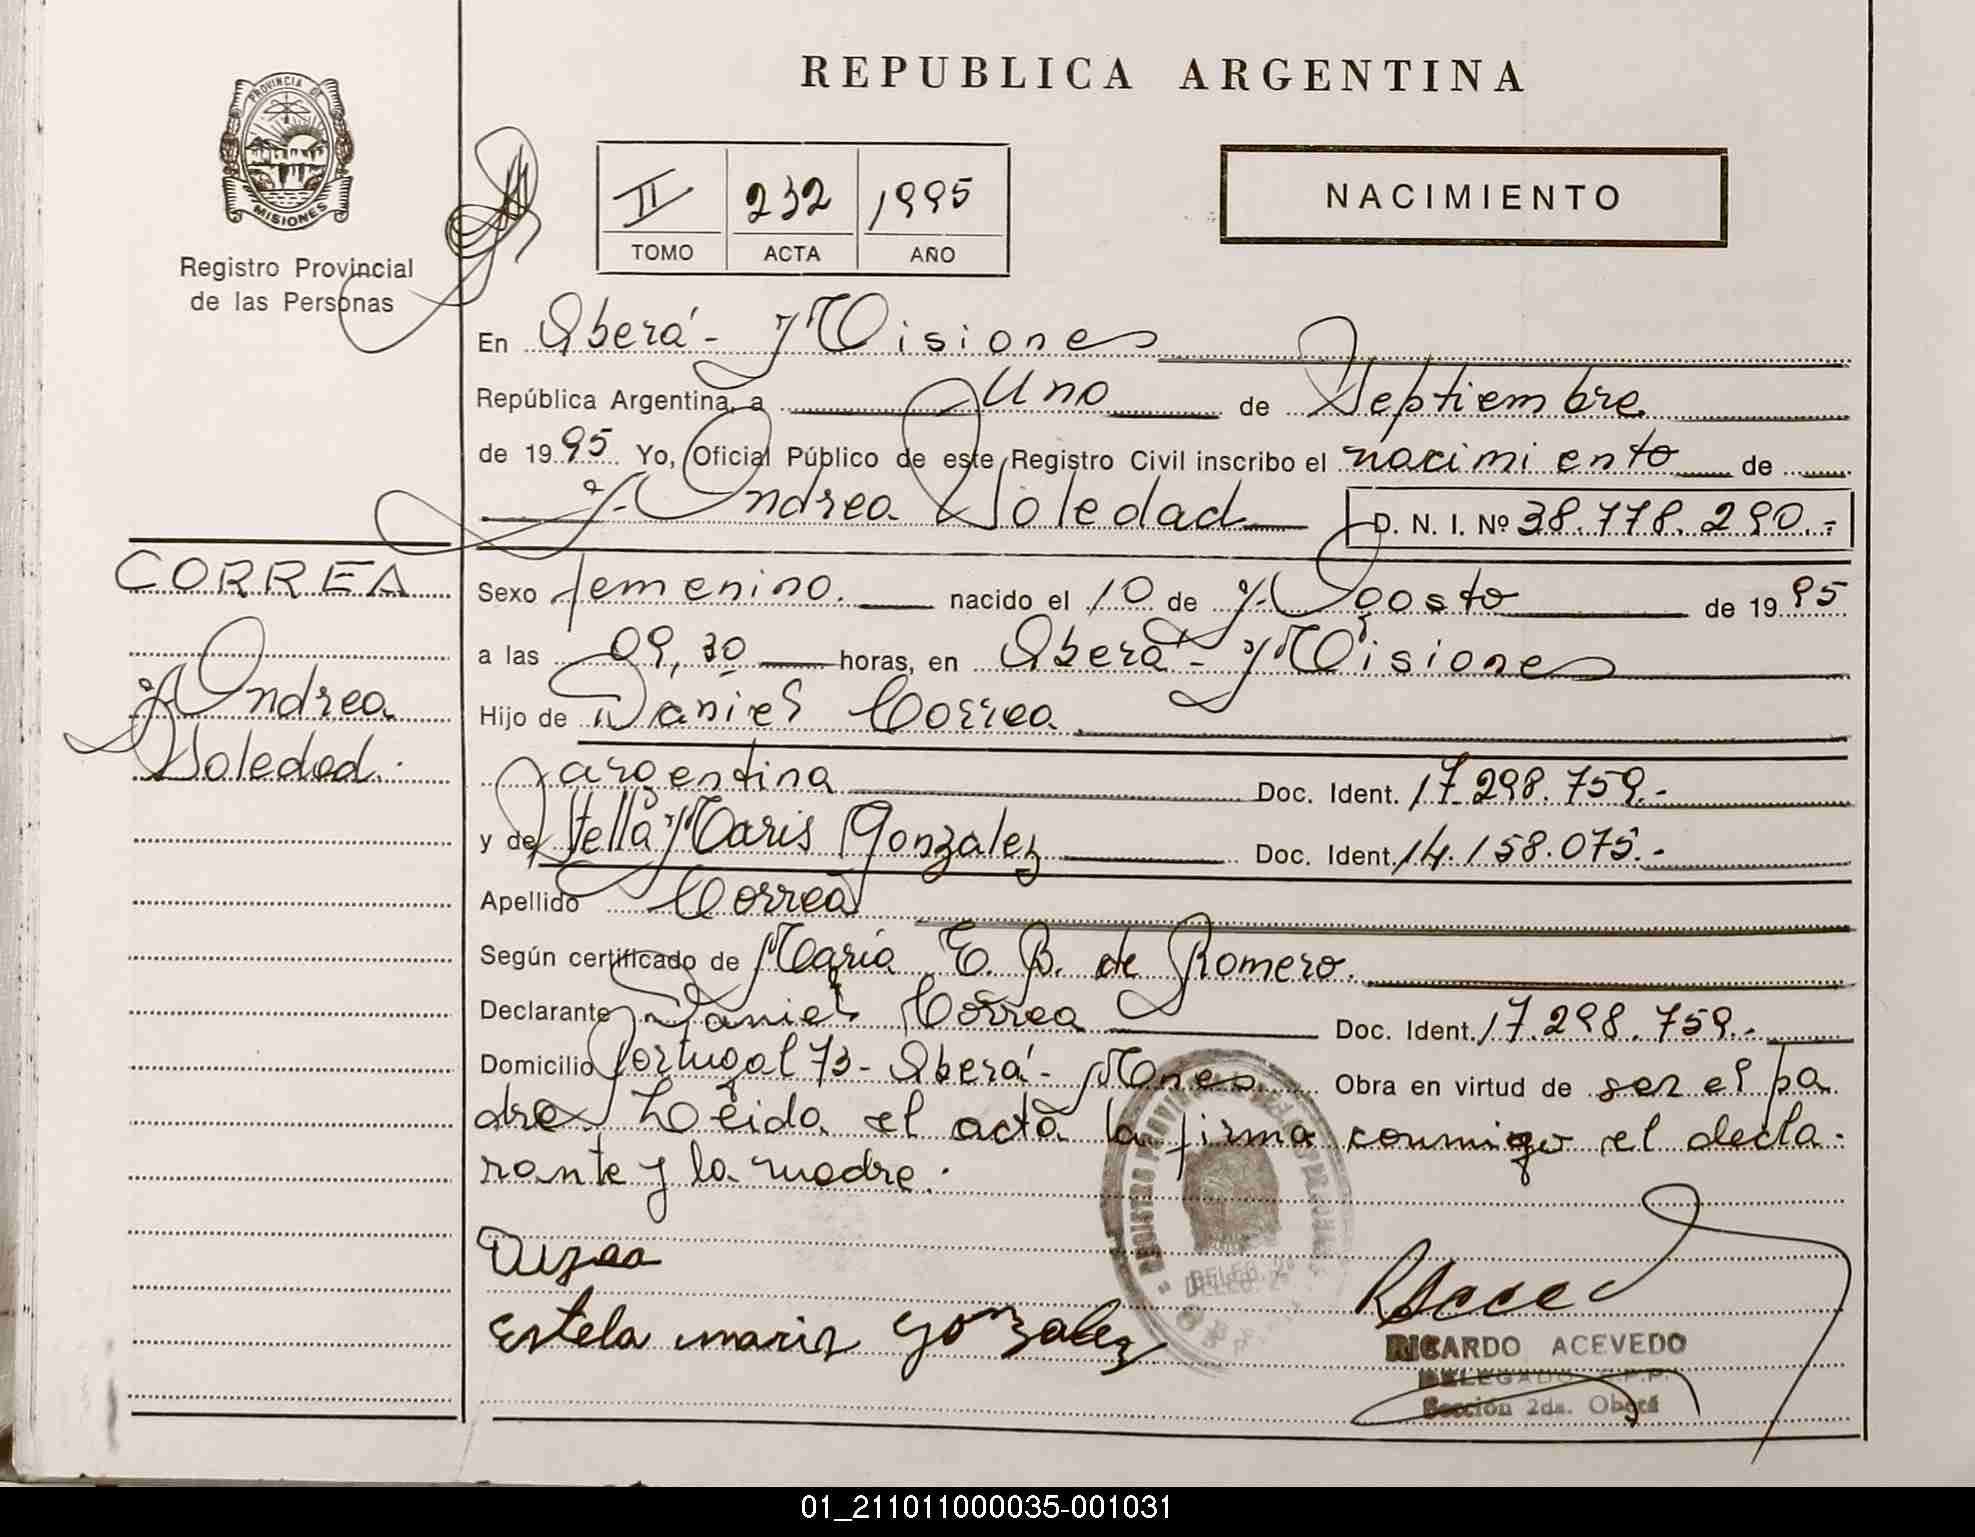 REPUBLICA ARGENTINA
PROVINCIA DE
MISIONES
Registro Provincial
de las Personas
II 232 1995
TOMO ACTA AÑO
NACIMIENTO
En Oberá - Misiones
República Argentina, a Uno de Septiembre
de 1995 Yo, Oficial Público de este Registro Civil inscribo el nacimiento de
Andrea Soledad D. N. I. Nº 38.778.290.-
CORREA
Andrea
Soledad.
Sexo femenino. nacido el 10 de Agosto de 1995
a las 09,30 horas, en Oberá - Misiones
Hijo de Daniel Correa
argentina Doc. Ident. 17.298.759.-
y de Stella Maris Gonzalez Doc. Ident. 14.158.075.-
Apellido Correa
Según certificado de María E. B. de Romero.
Declarante Daniel Correa Doc. Ident. 17.298.759.-
Domicilio Portugal 73 - Oberá - Mnes. Obra en virtud de ser el pa
dre. Leida el acta la firma conmigo el decla-
rante y la madre.
REGISTRO PROVINCIAL DE LAS PERSONAS
DELEG. 2ª
Estela maris gonzalez
RICARDO ACEVEDO
DELEGADO R.P.P.
Sección 2da. Oberá
01_211011000035-001031